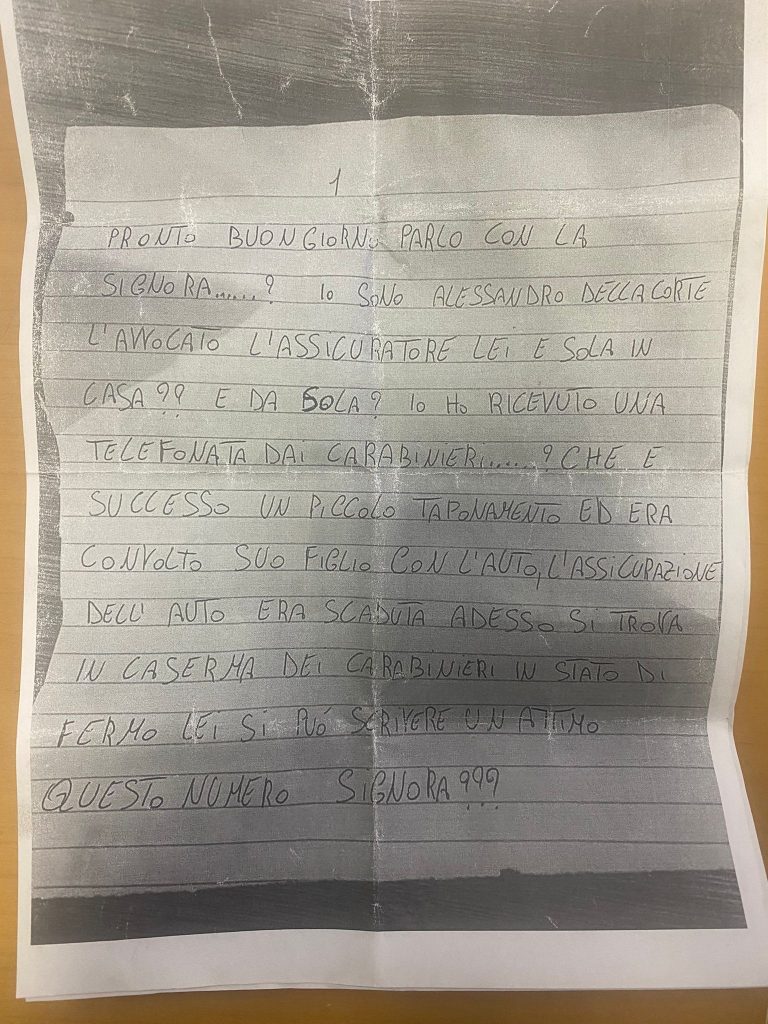 1
PRONTO BUONGIORNO PARLO CON LA
SIGNORA......? IO SONO ALESSANDRO DELLACORTE
L'AVVOCATO L'ASSICURATORE LEI E SOLA IN
CASA?? E DA SOLA? IO HO RICEVUTO UNA
TELEFONATA DAI CARABINIERI......? CHE E
SUCCESSO UN PICCOLO TAPONAMENTO ED ERA
CONVOLTO SUO FIGLIO CON L'AUTO, L'ASSICURAZIONE
DELL' AUTO ERA SCADUTA ADESSO SI TROVA
IN CASERMA DEI CARABINIERI IN STATO DI
FERMO LEI SI PUÓ SCRIVERE UN ATTIMO
QUESTO NUMERO SIGNORA???